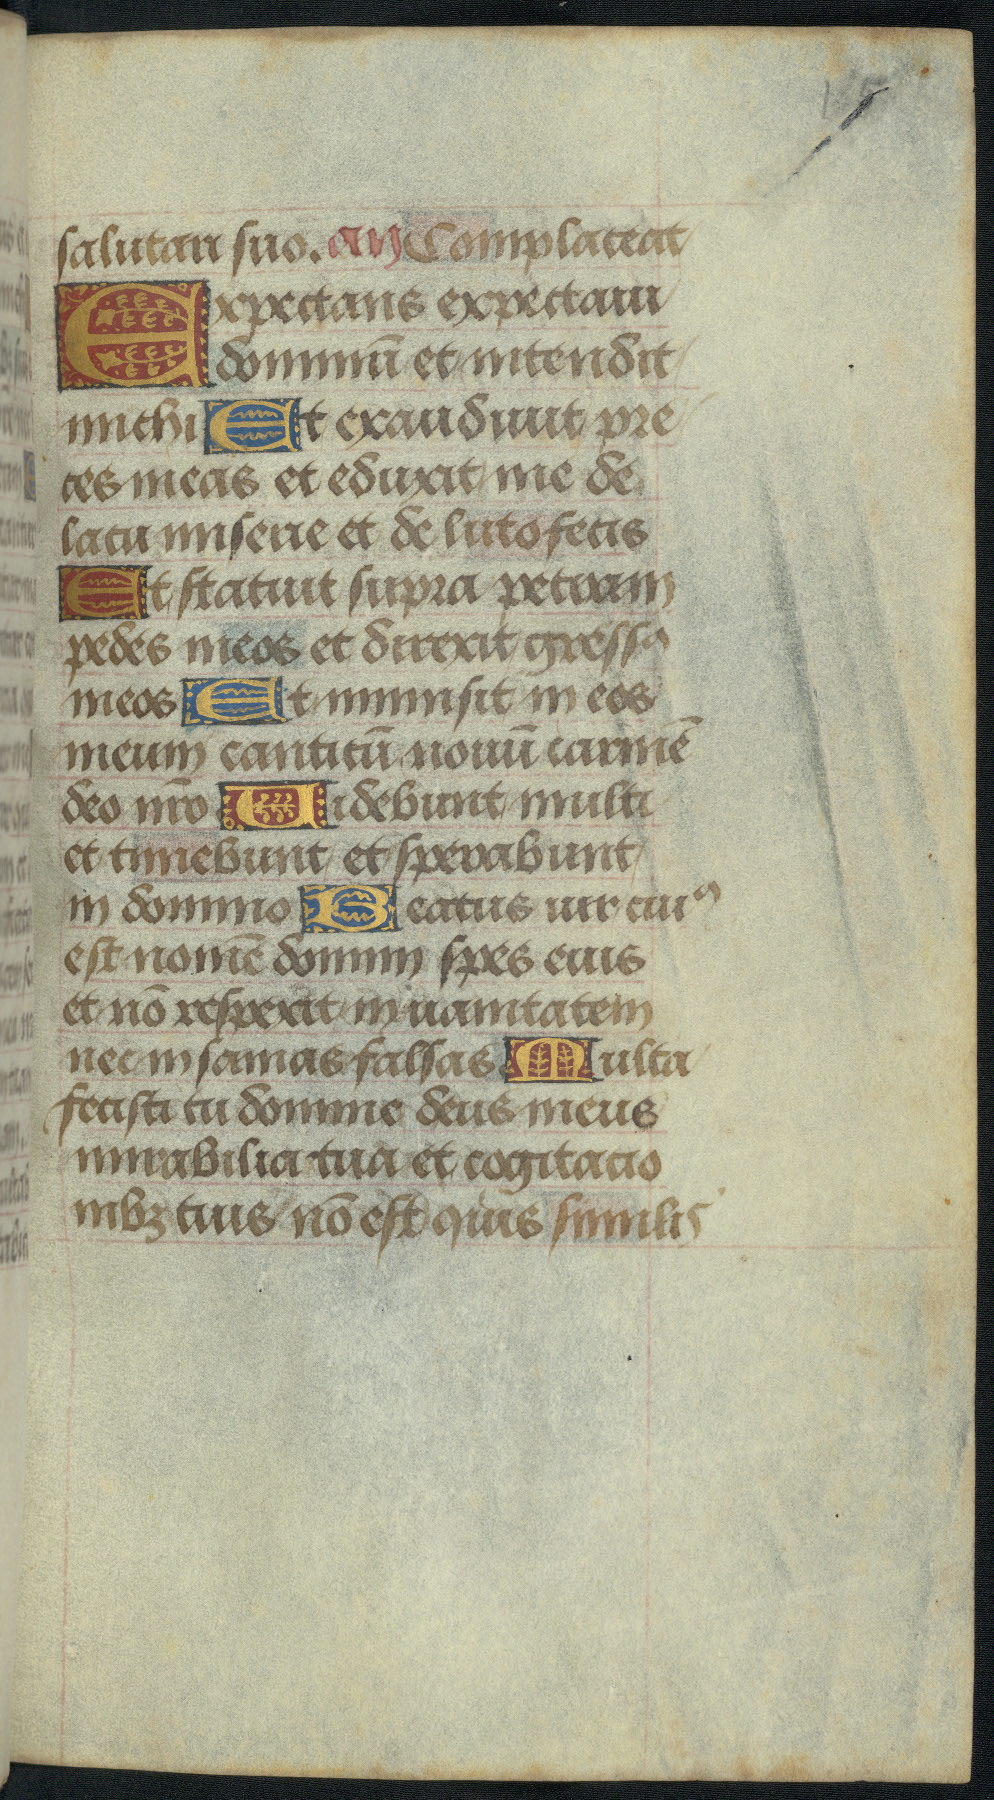 salutari suo. an Complaceat
Expectans expectaui
dominū et intendit
michi Et exaudiuit pre
ces meas et eduxit me de
lacu miserie et de luto fecis
Et statuit supra petram
pedes meos et direxit gressꝰ
meos Et inmisit in eos
meum canticū nouū carmē
deo nr̄o Uidebunt multi
et timebunt et sperabunt
in domino Beatus uir cuiꝰ
est nomē domini spes eius
et nō respexit in uanitatem
nec insanias falsas Multa
fecisti tu domine deus meus
mirabilia tua et cogitacio
nibꝫ tuis nō est quis similis